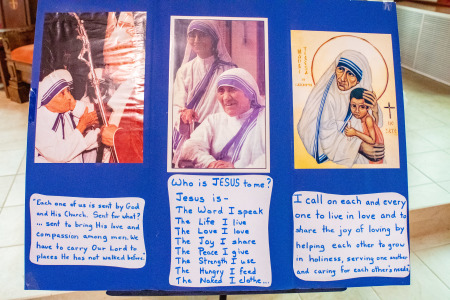 "Each one of us is sent by God
and His Church. Sent for what?
... sent to bring His love and
compassion among men. We
have to carry Our Lord to
places He has not walked before."
Who is JESUS to me?
Jesus is-
The Word I speak
The Life I live
The Love I love
The Joy I share
The Peace I give
The Strength I use
The Hungry I feed
The Naked I clothe...
I call on each and every
one to live in love and to
share the joy of loving by
helping each other to grow
in holiness, serving one another
and caring for each other's needs.